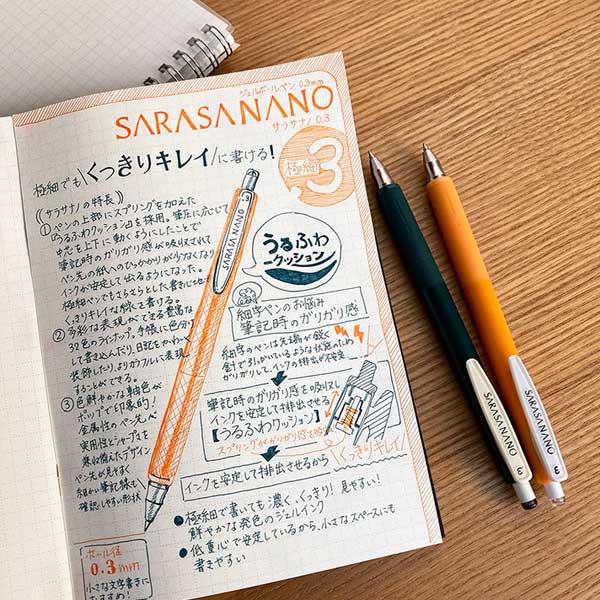 ジェルボールペン 0.3mm
SARASA NANO
サラサナノ 0.3
極細でも\くっきりキレイ/に書ける!
極細
3
((サラサナノの特長))
①ペンの上部にスプリングを加えた
「うるふわクッション」を採用。筆圧に応じて
中芯を上下に動くようにしたことで
筆記時のガリガリ感が吸収されて
ペン先の紙へのひっかかりが少なくなり
インクが安定して出るようになった。
極細ペンでもさらさらとした書き心地で
くっきりキレイな線で書ける。
②多彩な表現ができる豊富な
32色のラインナップ。手帳に色分け
して書き込んだり、日記をかわいく
装飾したり、よりカラフルに表現
することができる。
③色鮮やかな軸色が
ポップで印象的!
金属性のペン先が
実用性とシャープさを
兼ね備えたデザイン
ペン先が見やすく
細かい筆記線も
確認しやすい形状
ボール径
0.3mm
小さな文字書きに
おすすめ!
SARASA NANO
.3
うるふわ
クッション
細字ペンのお悩み
筆記時のガリガリ感
細字のペンは先端が鋭く
針でひっかいているような状態のため
ガリガリして、インクの排出が不安定…
筆記時のガリガリ感を吸収し
インクを安定して排出させる
【うるふわクッション】
スプリングがガリガリ感を吸収
インクを安定して排出させるから\くっきりキレイ/
●極細で書いても濃く、くっきり! 見やすい!
鮮やかな発色のジェルインク
●低重心で安定しているから、小さなスペースにも
書きやすい
SARASA NANO
.3
SARASA NANO
.3